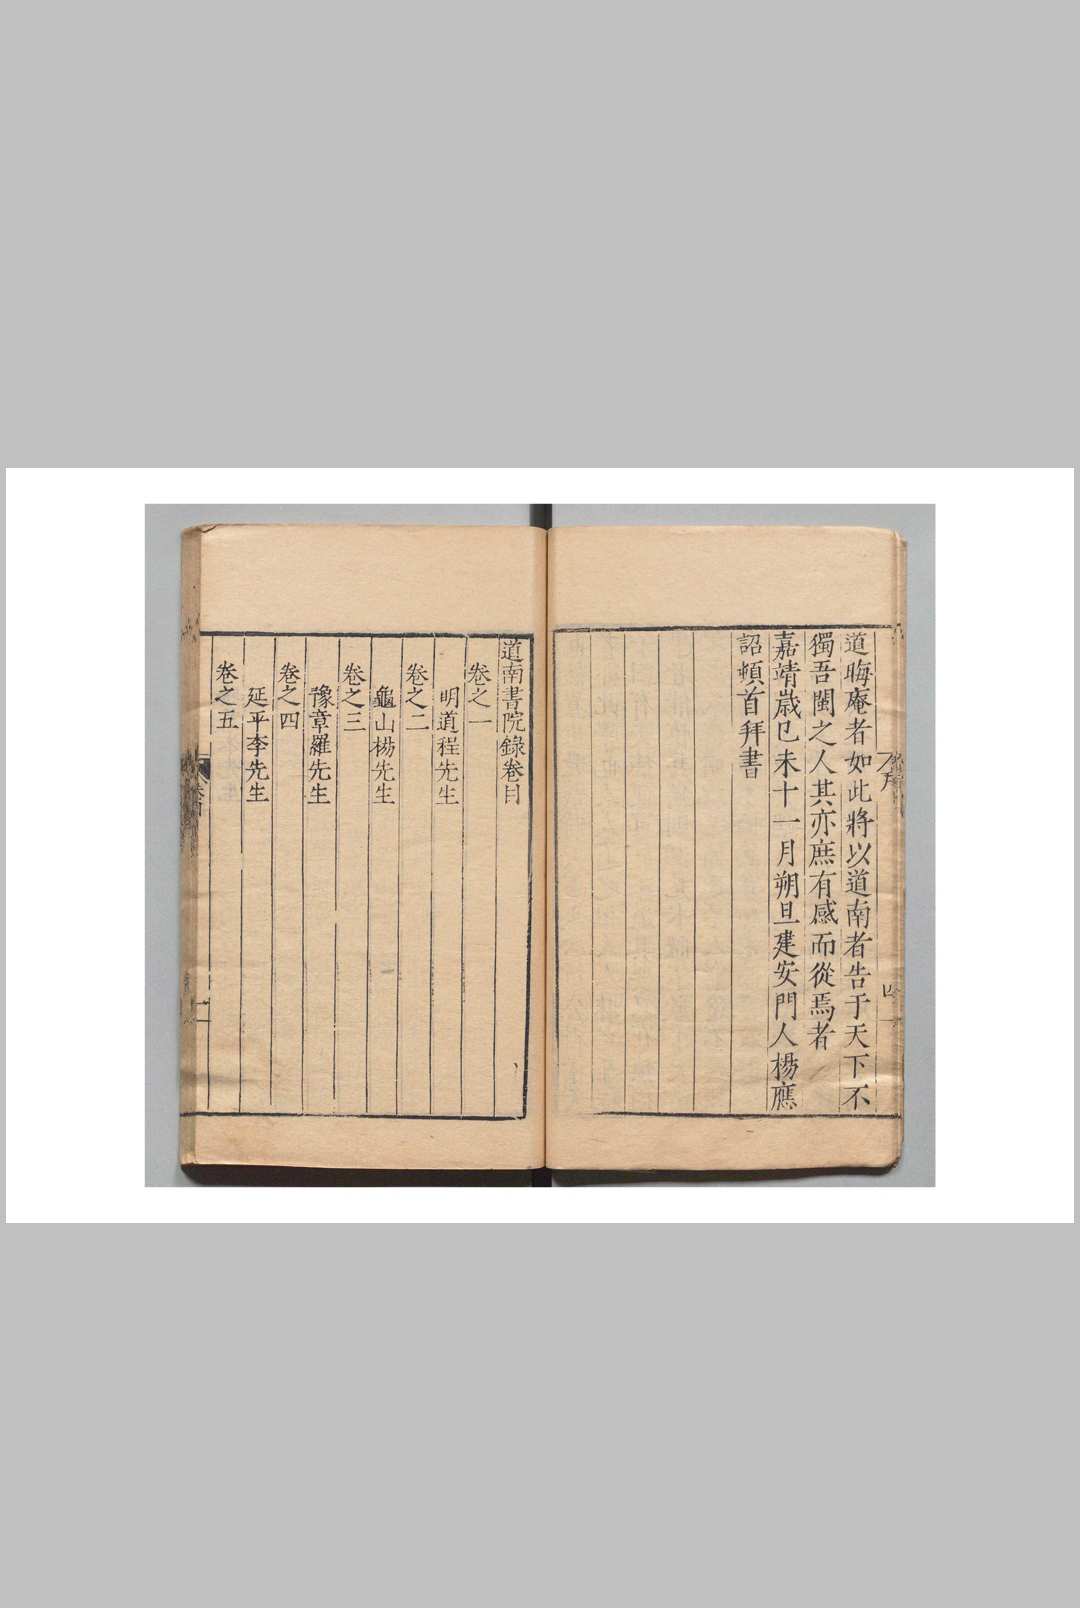 道晦庵者如此將以道南者告于天下不
獨吾閩之人其亦庶有感而從焉者
嘉靖歲己未十一月朔旦建安門人楊應
詔頓首拜書
四
道南書院錄卷目
卷之一
明道程先生
卷之二
龜山楊先生
卷之三
豫章羅先生
卷之四
延平李先生
卷之五